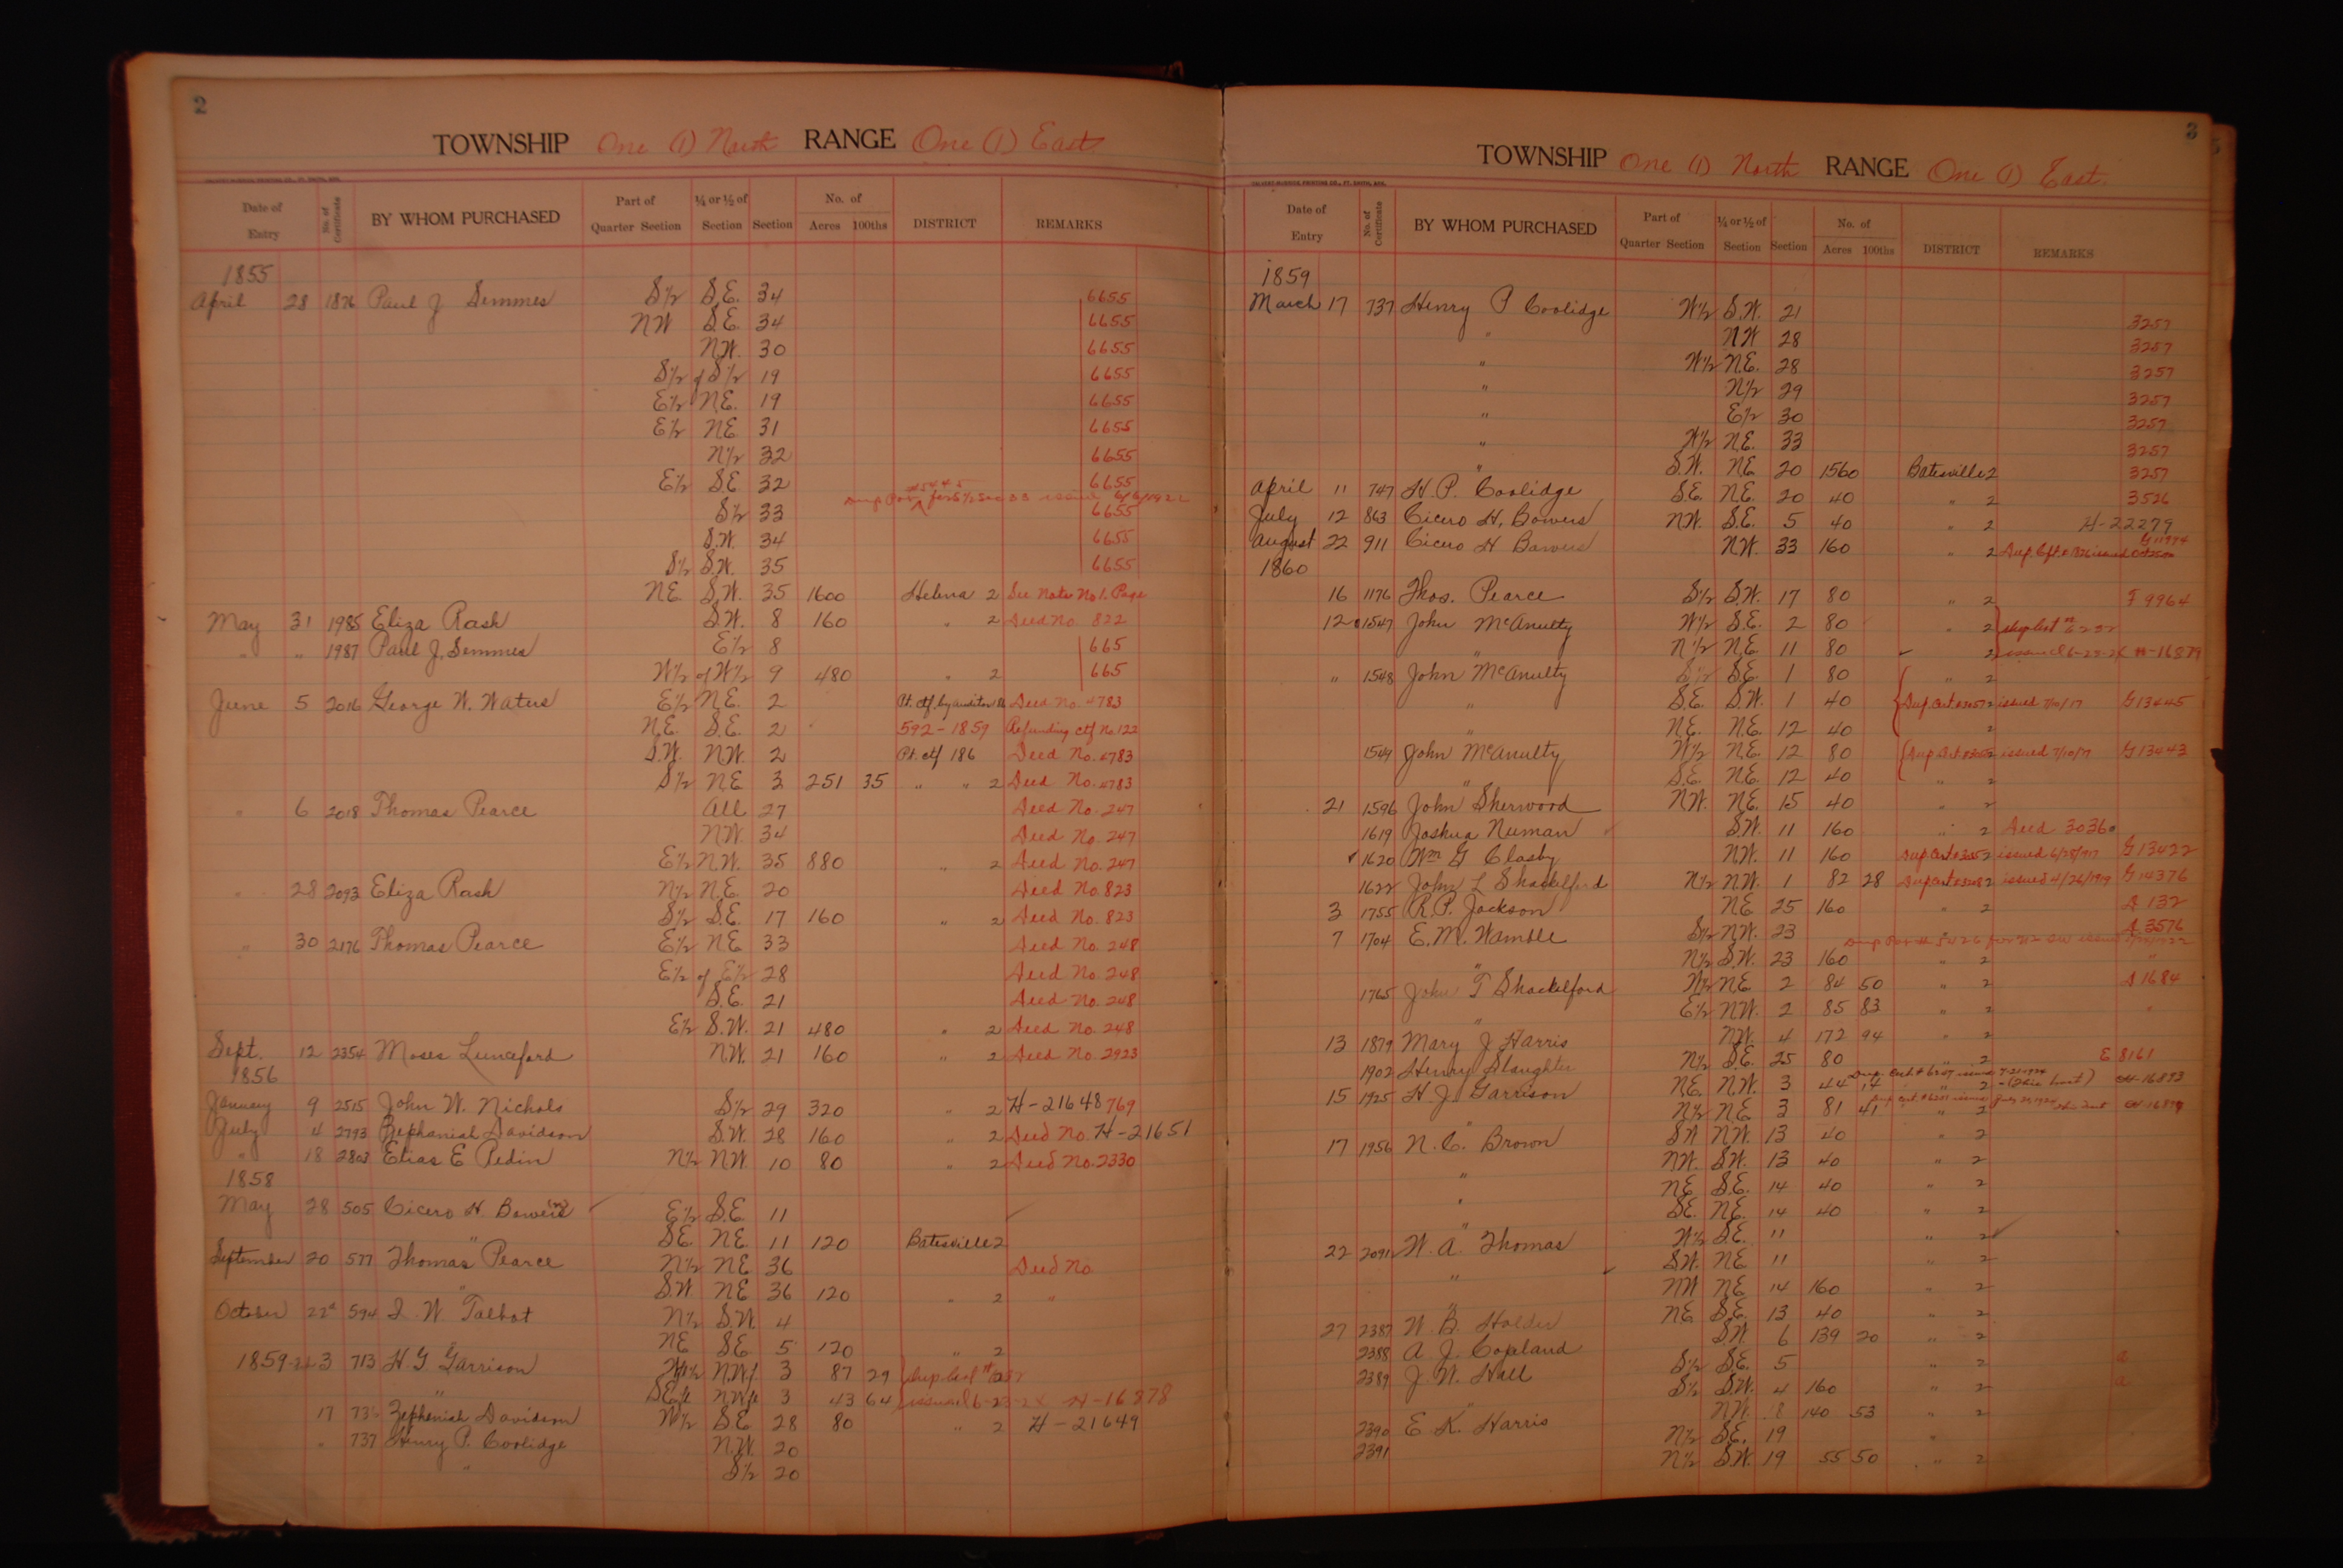 2
TOWNSHIP One (1) North RANGE One (1) East
CALVERT-McBRIDE PRINTING CO., FT. SMITH, ARK.
Date of Entry No. of Certificate BY WHOM PURCHASED Part of Quarter Section ¼ or ½ of Section Section No. of Acres 100ths DISTRICT REMARKS
1855
April 28 1876 Paul J Semmes S½ S.E. 34 6655
NW S.E. 34 6655
N.W. 30 6655
S½ of S½ 19 6655
E½ N.E. 19 6655
E½ NE 31 6655
N½ 32 6655
E½ SE 32 6655
S½ 33 6655
S.W. 34 6655
S½ S.W. 35 6655
NE S.W. 35 1600 Helena 2 See Note No 1. Page
May 31 1985 Eliza Rash S.W. 8 160 " 2 Deed No. 822
" " 1987 Paul J. Semmes E½ 8 665
W½ of W½ 9 480 " 2 665
June 5 2016 George W. Waters E½ N.E. 2 Pt. ctf. by auditor Deed No. 4783
N.E. S.E. 2 592-1859 Refunding ctf No. 122
S.W. N.W. 2 Pt. ctf 186 Deed No. 4783
S½ NE 3 251 35 " " 2 Deed No. 4783
" 6 2018 Thomas Pearce All 27 Deed No. 247
N.W. 34 Deed No 247
E½ N.W. 35 880 " 2 Deed No. 247
" 28 2093 Eliza Rash N½ N.E. 20 Deed No. 823
S½ S.E. 17 160 " 2 Deed No. 823
" 30 2176 Thomas Pearce E½ NE 33 Deed No. 248
E½ of E½ 28 Deed No. 248
S.E. 21 Deed No. 248
E½ S.W. 21 480 " 2 Deed No. 248
Sept. 12 2354 Moses Lunceford N.W. 21 160 " 2 Deed No. 2923
1856
January 9 2515 John W. Nichols S½ 29 320 " 2 H-21648 769
July 4 2793 Zephaniah Davidson S.W. 28 160 " 2 Deed No. H-21651
" 18 2803 Elias E Pedin N½ NW 10 80 " 2 Deed No. 2330
1858
May 28 505 Cicero H. Bowers E½ S.E. 11
" SE NE 11 120 Batesville 2
September 20 577 Thomas Pearce N½ NE 36 Deed No
" S.W NE 36 120 " 2 "
October 22 594 I. W. Talbot N½ S.W. 4
" NE SE 5 120 " 2
1859 3 713 H. G. Garrison W½ N.W. 3 87 29
" NW 3 43 64 issued 6-23-2 H-16878
17 Zepheniah Davidson W½ SE 28 80 " 2 H-21649
" 737 Henry P. Coolidge N.W. 20
" S½ 20
3
TOWNSHIP One (1) North RANGE One (1) East.
CALVERT-McBRIDE PRINTING CO., FT. SMITH, ARK.
Date of Entry No. of Certificate BY WHOM PURCHASED Part of Quarter Section ¼ or ½ of Section Section No. of Acres 100ths DISTRICT REMARKS
1859
March 17 737 Henry P Coolidge W½ S.W. 21 3257
" NW 28 3257
" W½ N.E. 28 3257
" N½ 29 3257
" E½ 30 3257
" W½ N.E. 33 3257
" S.W. NE 20 1560 Batesville 2 3257
April 11 747 H. P. Coolidge S.E. N.E. 20 40 " 2 3526
July 12 863 Cicero H. Bowers N.W. S.E. 5 40 " 2 H-22279
August 22 911 Cicero H Bowers N.W. 33 160 " 2 G11974
1860
16 1176 Thos. Pearce S½ S.W. 17 80 " 2 F 9964
12 1547 John McAnulty W½ S.E. 2 80 " 2
" N½ N.E. 11 80 2 issued 6-23-2 H-16879
" 1548 John McAnulty S½ S.E. 1 80 " 2
" S.E. S.W. 1 40 Dup. Cert #3057 2 issued 7/10/17 G13445
" N.E. N.E. 12 40 2
1549 John McAnulty W½ N.E. 12 80 issued 7/10/17 G13443
" S.E. N.E. 12 40 " 2
21 1596 John Sherwood N.W. N.E. 15 40 " 2
1619 Joshua Numan S.W. 11 160 " 2 Deed 3036
1620 Wm G Clasby N.W. 11 160 issued 6/28/17 G13422
1622 John L Shackelford N½ N.W. 1 82 28 issued 4/26/1919 G14376
3 1755 R. P. Jackson NE 25 160 " 2 A 132
7 1704 E. M. Wamble S½ N.W. 23 A 3576
" N½ S.W. 23 160 " 2 "
1765 John T Shackelford W½ NE 2 84 50 " 2 A 1684
" E½ N.W. 2 85 83 " 2 "
13 1879 Mary J Harris N.W. 4 172 94 " 2
1902 Henry Slaughter N½ S.E. 25 80 " 2 E 8161
15 1925 H. J. Garrison NE. N.W. 3 44 14 " 2 H-16893
" N½ NE 3 81 41 " 2
17 1956 N. C. Brown SW NW. 13 40 " 2
NW. SW. 13 40 " 2
" NE S.E. 14 40 " 2
" SE. NE. 14 40 " 2
" W½ S.E. 11 " 2
22 2091 W. A. Thomas S.W. NE 11 " 2
" NW NE 14 160 " 2
" NE S.E. 13 40 " 2
27 2387 W. B. Holder S.W 6 139 20 " 2
2388 A. J. Copeland S½ S.E. 5 " 2
2389 J. W. Hall S½ S.W. 4 160 " 2
" NW 8 140 53 " 2
2390 E. K. Harris N½ S.E. 19 "
2391 N½ S.W. 19 55 50 " 2